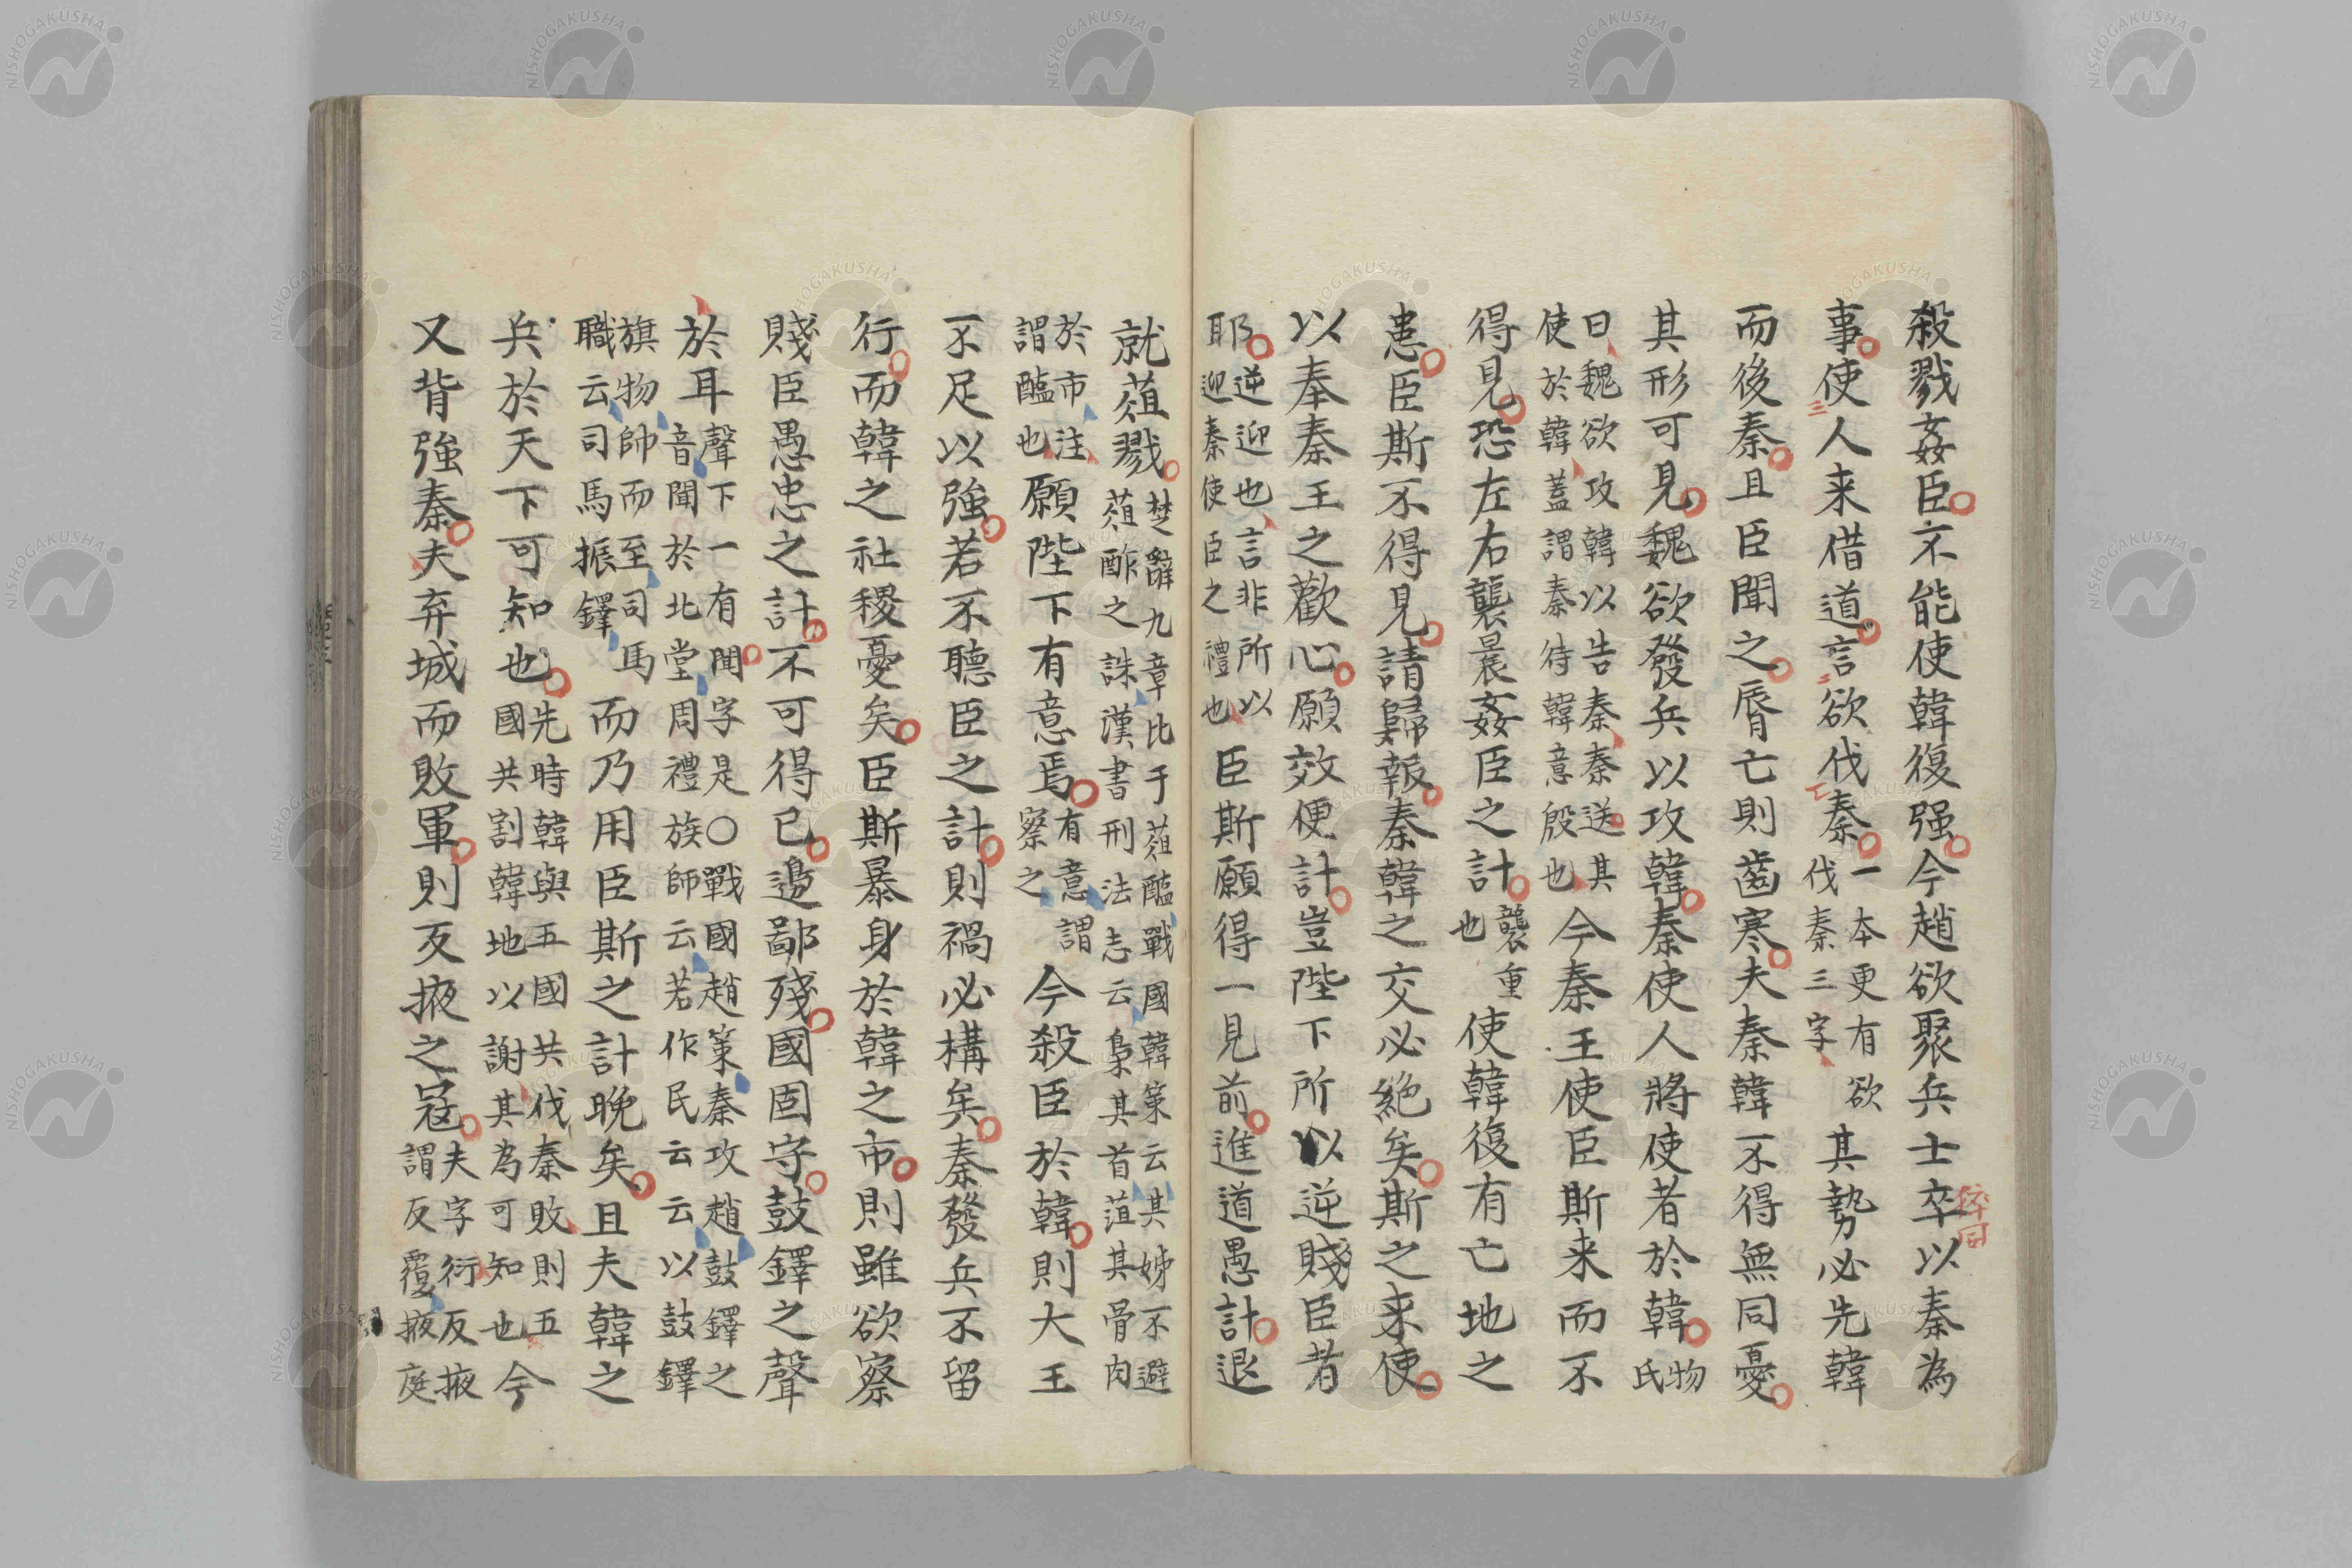 殺戮姦臣不能使韓復强今趙欲聚兵士卒以秦為
事使人来借道言欲伐秦一本更有欲伐秦三字其勢必先韓
而後秦且臣聞之脣亡則齒寒夫秦韓不得無同憂
其形可見魏欲發兵以攻韓秦使人將使者於韓物氏
曰魏欲攻韓以告秦秦送其使於韓蓋謂秦待韓意殷也今秦王使臣斯来而不
得見恐左右襲曩姦臣之計襲重也使韓復有亡地之
患臣斯不得見請歸報秦韓之交必絕矣斯之来使
以奉秦王之歡心願效便計豈陛下所以逆賤臣者
耶逆迎也言非所以迎秦使臣之禮也臣斯願得一見前進道愚計退
就葅戮楚辭九章比干葅醢戰國韓策云其姊不避葅酢之誅漢書刑法志云梟其首菹其骨肉
於市注謂醢也願陛下有意焉有意謂察之今殺臣於韓則大王
不足以強若不聽臣之計則禍必構矣秦發兵不留
行而韓之社稷憂矣臣斯暴身於韓之市則雖欲察
賤臣愚忠之計不可得已邊鄙殘國固守鼓鐸之聲
於耳聲下一有聞字是〇戰國趙策秦攻趙鼓鐸之音聞於北堂周禮族師云若作民云云以鼓鐸
旗物帥而至司馬職云司馬振鐸而乃用臣斯之計晚矣且夫韓之
兵於天下可知也先時韓與五國共伐秦敗則五國共割韓地以謝其為可知也今
又背強秦夫弃城而敗軍則反掖之寇夫字衍反掖謂反覆掖庭
倅同